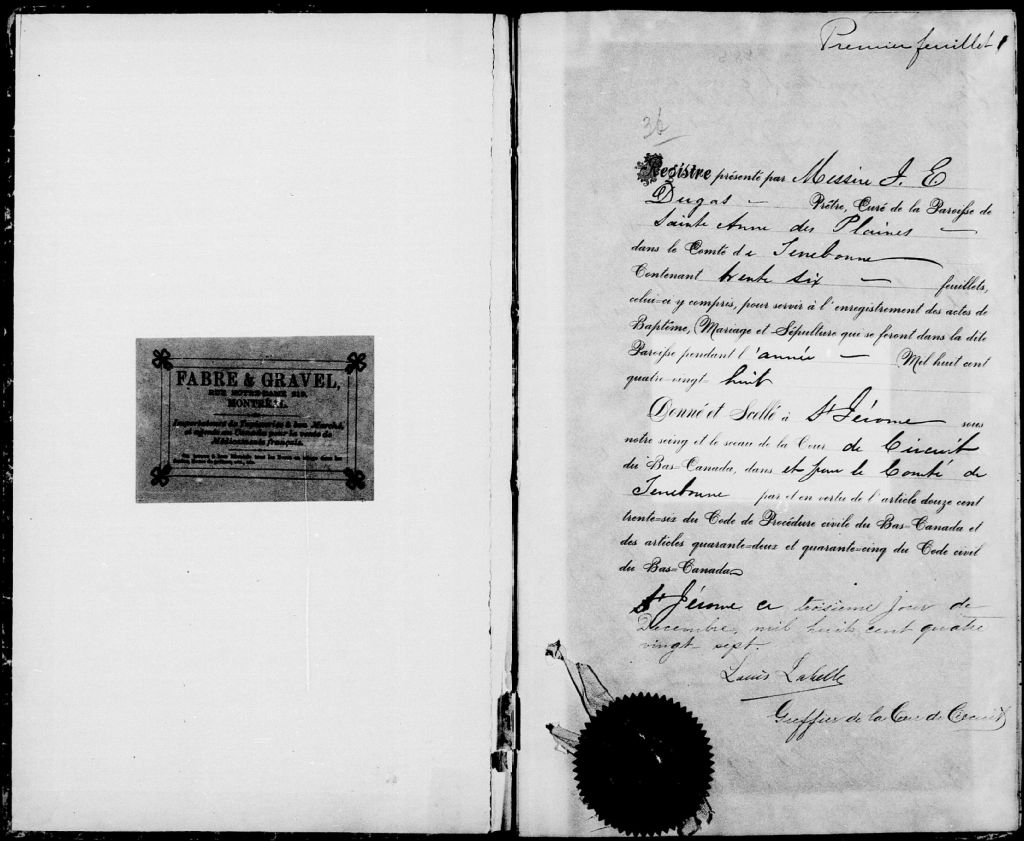 FABRE & GRAVEL,
RUE NOTRE-DAME 219,
MONTRÉAL.
Premier feuillet 1
36
Registre présenté par Messire J. E
Dugas — Prêtre, Curé de la Paroisse de
Sainte Anne des Plaines —
dans le Comté de Terrebonne
Contenant trente six — feuillets,
celui-ci y compris, pour servir à l'enregistrement des actes de
Baptême, Mariage et Sépulture qui se feront dans la dite
Paroisse pendant l'année — Mil huit cent
quatre-vingt huit
Donné et Scellé à St Jérome sous
notre seing et le sceau de la Cour de Circuit
du Bas Canada, dans et pour le Comté de
Terrebonne par et en vertu de l'article douze cent
trente-six du Code de Procédure civile du Bas-Canada et
des articles quarante-deux et quarante-cinq du Code civil
du Bas-Canada
St Jérome ce troisieme jour de
Decembre, mil huit cent quatre
vingt sept.
Louis Labelle
Greffier de la Cour de Circuit